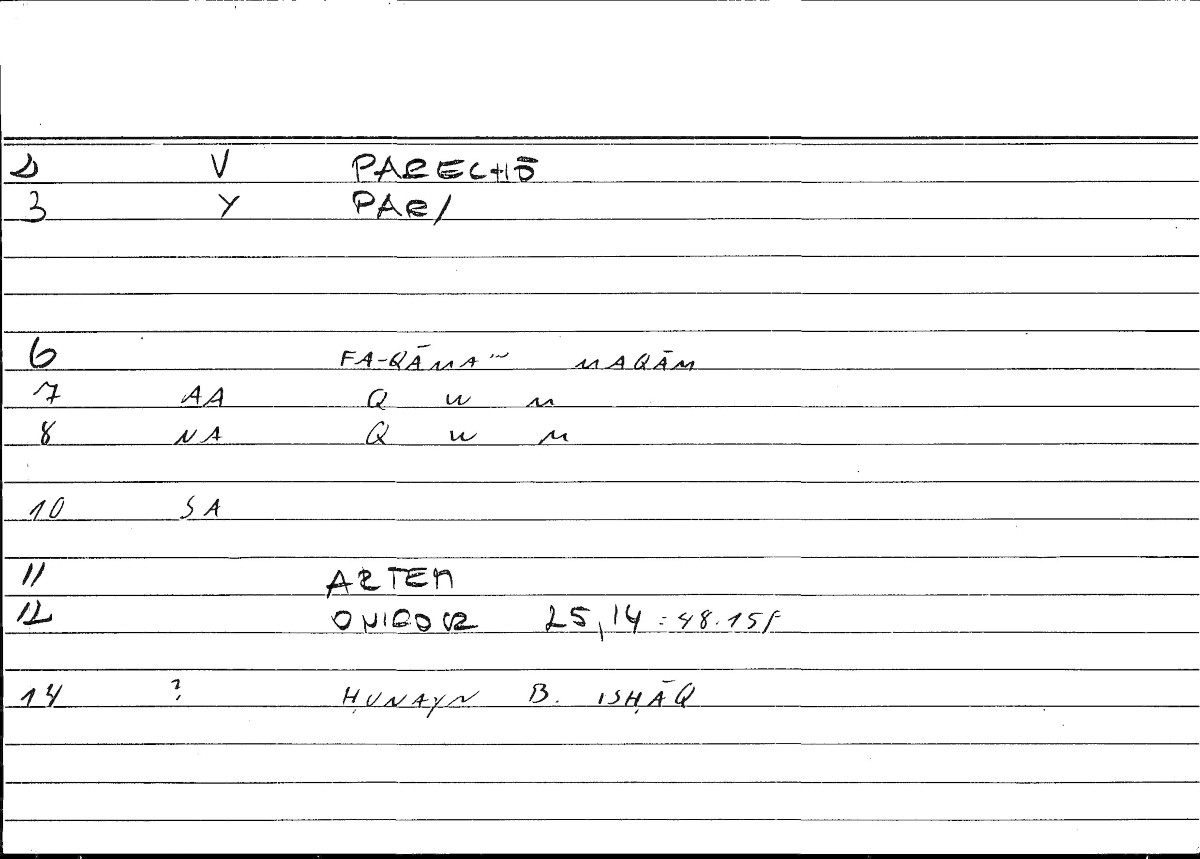 2 V PARECHŌ
3 Y PAR/
6 FA-QĀMA~ MAQĀM
7 AA Q W M
8 NA Q W M
10 SA
11 ARTEM
12 ONIROCR 25,14 : 48.15F
14 ? ḤUNAYN B. ISḤĀQ